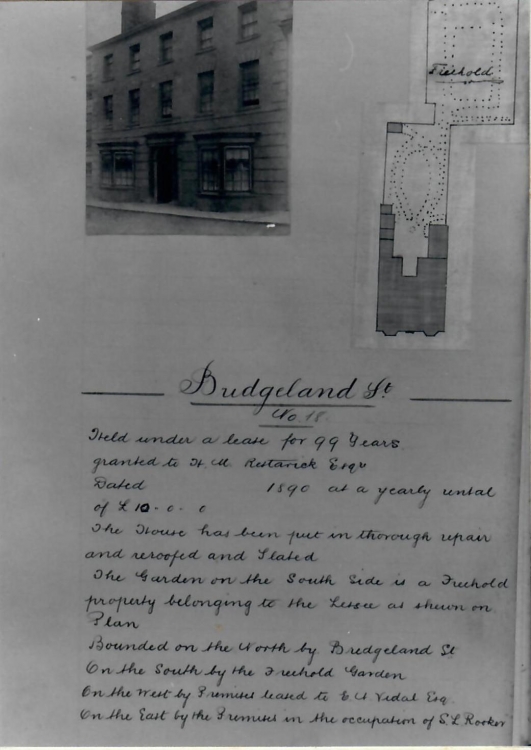 Freehold
Bridgeland St
No. 18.
Held under a lease for 99 Years
granted to H. M. Restarick Esqr
Dated 1890 at a yearly rental
of £ 10. 0. 0
The House has been put in thorough repair
and reroofed and Slated
The Garden on the South Side is a Freehold
property belonging to the Lessee as shewn on
Plan
Bounded on the North by Bridgeland St
On the South by the Freehold Garden
On the West by Premises leased to E. U. Vidal Esq.
On the East by the Premises in the occupation of S. L Rooker